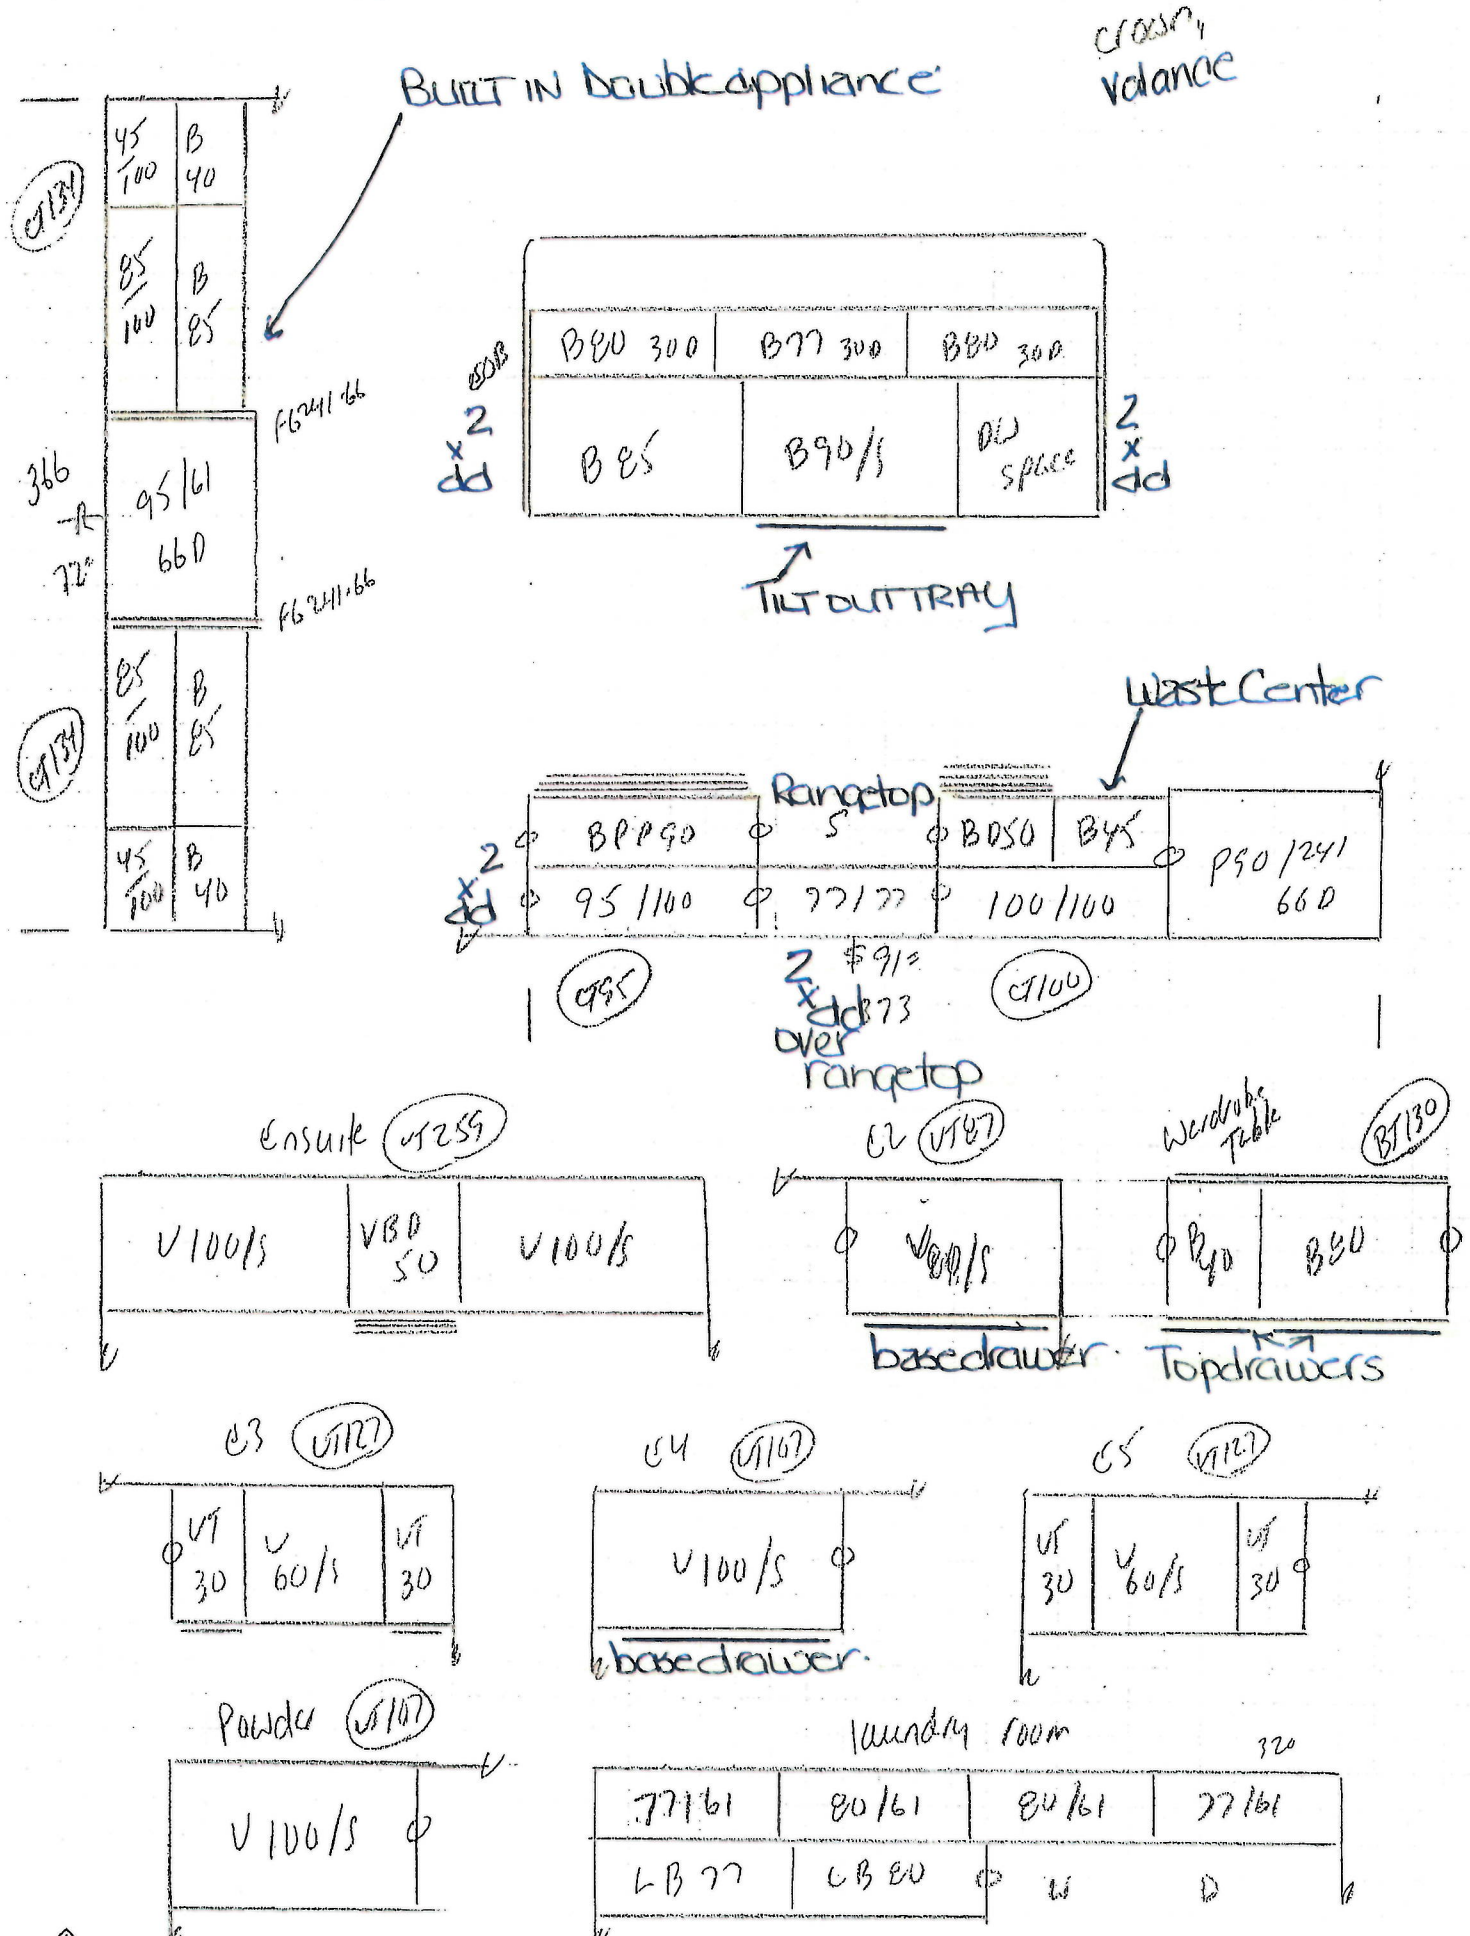 crown,
valance
BUILT IN Double appliance
45/100
B 40
CT134
85/100
B 85
F6241.66
366
R
72"
95/61
66D
F6241.66
85/100
B 85
CT134
45/100
B 40
B80 30D
B77 30D
B80 30D
2
x
dd
B85
B90/S
DW
space
2
x
dd
TILT OUT TRAY
Waste Center
Rangetop
BPP90
S
BD50
B45
P90/241
66D
2
x
dd
95/100
77/77
100/100
CT95
2
x
dd
over
rangetop
$91=
373
CT100
Ensuite VT259
V100/S
VBD
50
V100/S
E2 VT87
V80/S
basedrawer.
Wardrobe
Table
BT130
B40
B80
Topdrawers
E3 VT127
VT
30
V
60/S
VT
30
E4 VT107
V100/S
basedrawer.
E5 VT127
VT
30
V
60/S
VT
30
Powder VT107
V100/S
laundry room
320
77/61
80/61
80/61
77/61
LB77
LB80
W
D